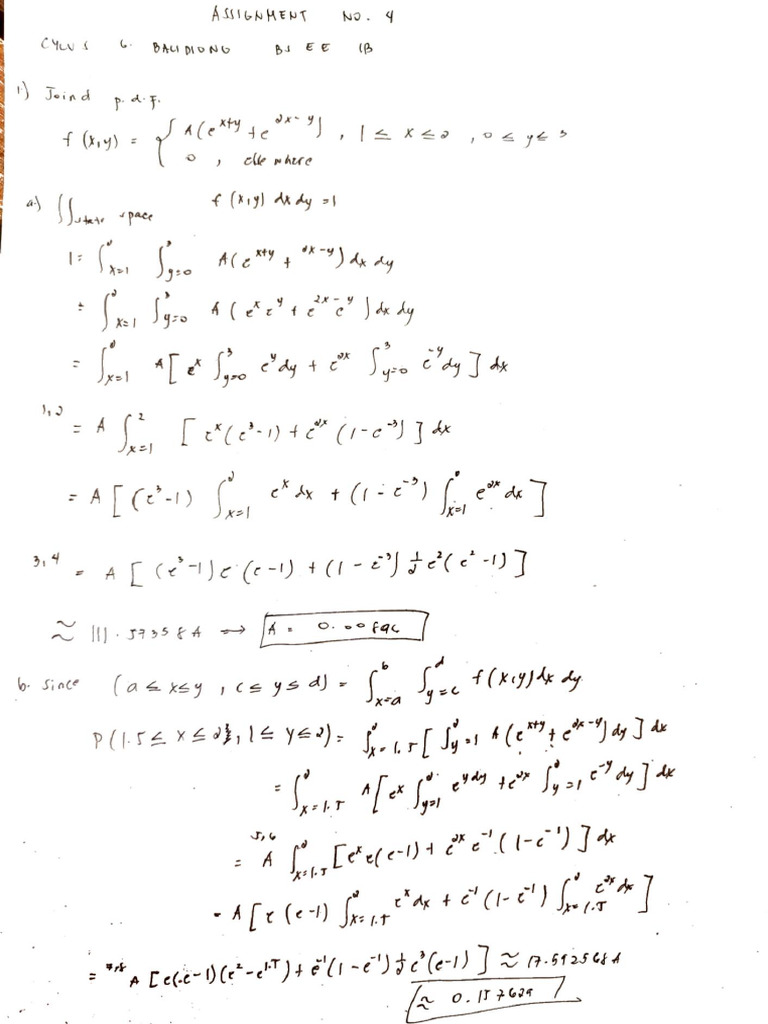 ASSIGNMENT NO. 4
CYLUS G. BALIDIONG BS EE 1B
1.) Joind p.d.f.
f(x,y) = { A(e^{x+y} + e^{2x-y}), 1 ≤ x ≤ 2, 0 ≤ y ≤ 3
0, elsewhere
a.) ∬state space f(x,y) dx dy = 1
1 = ∫_{x=1}^{2} ∫_{y=0}^{3} A(e^{x+y} + e^{2x-y}) dx dy
= ∫_{x=1}^{2} ∫_{y=0}^{3} A(e^x e^y + e^{2x} e^{-y}) dx dy
= ∫_{x=1}^{2} A[e^x ∫_{y=0}^{3} e^y dy + e^{2x} ∫_{y=0}^{3} e^{-y} dy] dx
1,2 = A ∫_{x=1}^{2} [e^x(e^3-1) + e^{2x}(1-e^{-3})] dx
= A[(e^3-1) ∫_{x=1}^{2} e^x dx + (1-e^{-3}) ∫_{x=1}^{2} e^{2x} dx]
3,4 = A[(e^3-1)e(e-1) + (1-e^{-3}) 1/2 e^2(e^2-1)]
≈ 111.57358A → A = 0.00896
b. since (a ≤ x ≤ y, c ≤ y ≤ d) = ∫_{x=a}^{b} ∫_{y=c}^{d} f(x,y) dx dy
P(1.5 ≤ x ≤ 2, 1 ≤ y ≤ 2) = ∫_{x=1.5}^{2} [∫_{y=1}^{2} A(e^{x+y} + e^{2x-y}) dy] dx
= ∫_{x=1.5}^{2} A[e^x ∫_{y=1}^{2} e^y dy + e^{2x} ∫_{y=1}^{2} e^{-y} dy] dx
5,6 = A ∫_{x=1.5}^{2} [e^x e(e-1) + e^{2x} e^{-1}(1-e^{-1})] dx
= A[e(e-1) ∫_{x=1.5}^{2} e^x dx + e^{-1}(1-e^{-1}) ∫_{x=1.5}^{2} e^{2x} dx]
7,8 = A[e(e-1)(e^2-e^{1.5}) + e^{-1}(1-e^{-1}) 1/2 e^3(e-1)] ≈ 17.592568A
≈ 0.157629